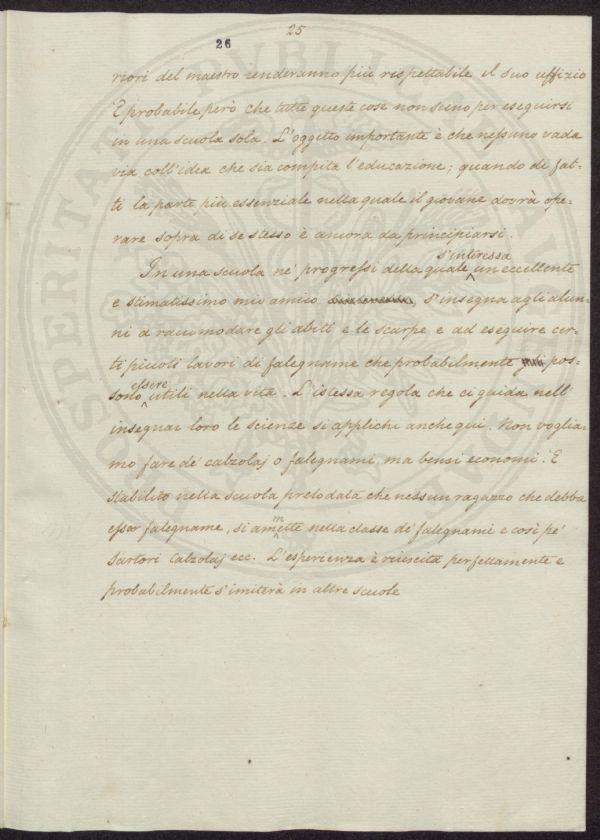 25
26
riori del maestro renderanno più rispettabile il suo uffizio
E probabile però che tutte queste cose non sieno per eseguirsi
in una scuola sola. L'oggetto importante è che nessuno vada
via coll'idea che sia compita l'educazione; quando di fat-
ti la parte più essenziale nella quale il giovane dovrà ope-
rare sopra di se stesso è ancora da principiarsi.
s'interessa
In una scuola ne' progressi della quale un eccellente
e stimatissimo mio amico s'insegna agli alun-
ni a raccomodare gli abiti e le scarpe e ad eseguire cer-
ti piccoli lavori di falegname che probabilmente pos-
essere
sono utili nella vita. L'istessa regola che ci guida nell'
insegnar loro le scienze si applichi anche qui. Non voglia-
mo fare de' calzolaj o falegnami, ma bensì economi. È
stabilito nella scuola prelodata che nessun ragazzo che debba
esser falegname, si ammette nella classe de' falegnami e così pe'
Sartori Calzolaj ecc. L'esperienza è riuscita perfettamente e
probabilmente s'imiterà in altre scuole